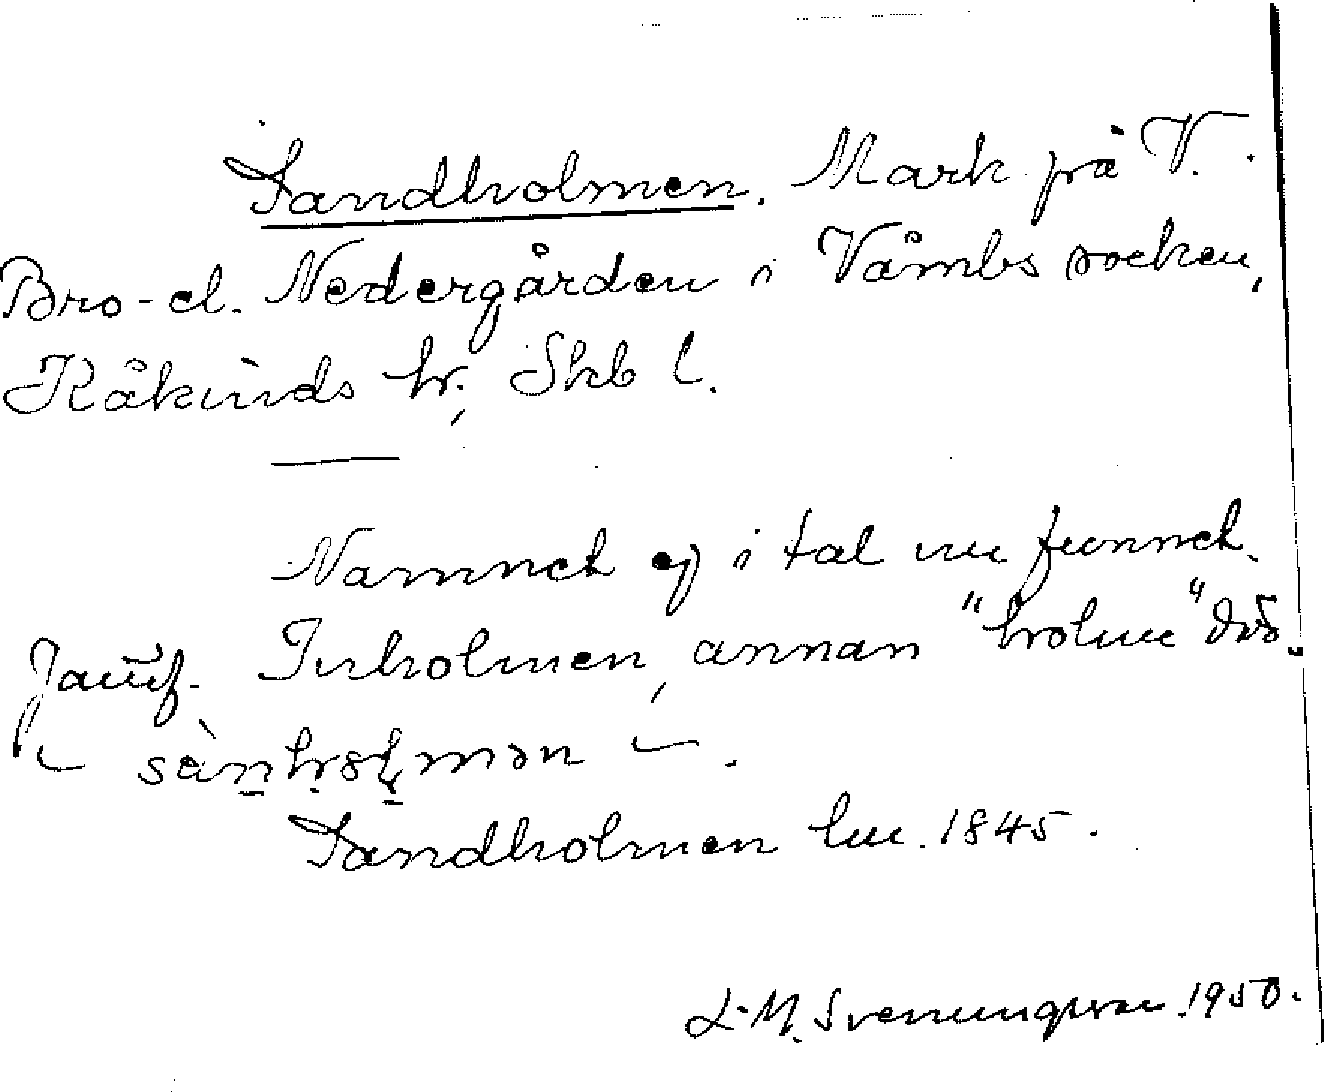 Sandholmen. Mark på V.
Bro- el. Nedergården i Våmbs socken,
Kåkinds hr, Skb l.
Namnet ej i tal nu funnet.
Jämf. Inholmen, annan "holme" dvs.
Sandholmen lm. 1845.
L-M. Svenungsson. 1950.